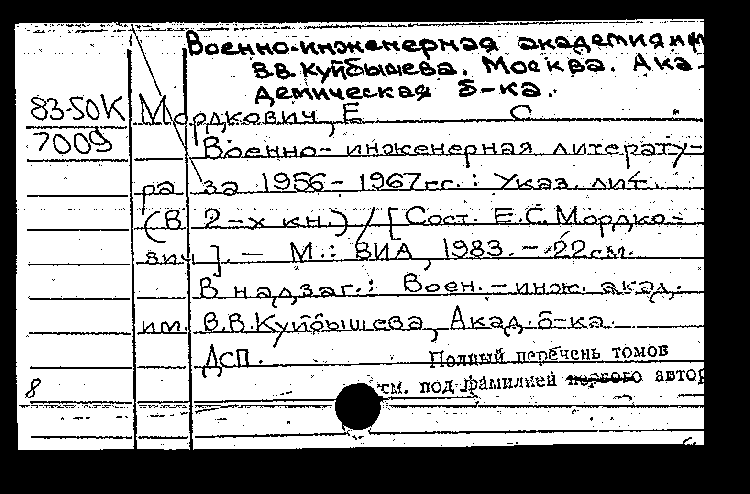 Военно-инженерная академия им
В.В. Куйбышева. Москва. Ака-
демическая б-ка.
83-50К Мордкович, Е С
7009 Военно-инженерная литерату-
ра за 1956-1967гг.: Указ. лит.
(В 2-х кн.) / [Сост. Е.С. Мордко-
вич]. - М.: ВИА, 1983. - 22см.
В надзаг.: Воен.-инж. акад.
им. В.В.Куйбышева, Акад. б-ка.
ДСП. Полный перечень томов
8 см. под фамилией первого автор